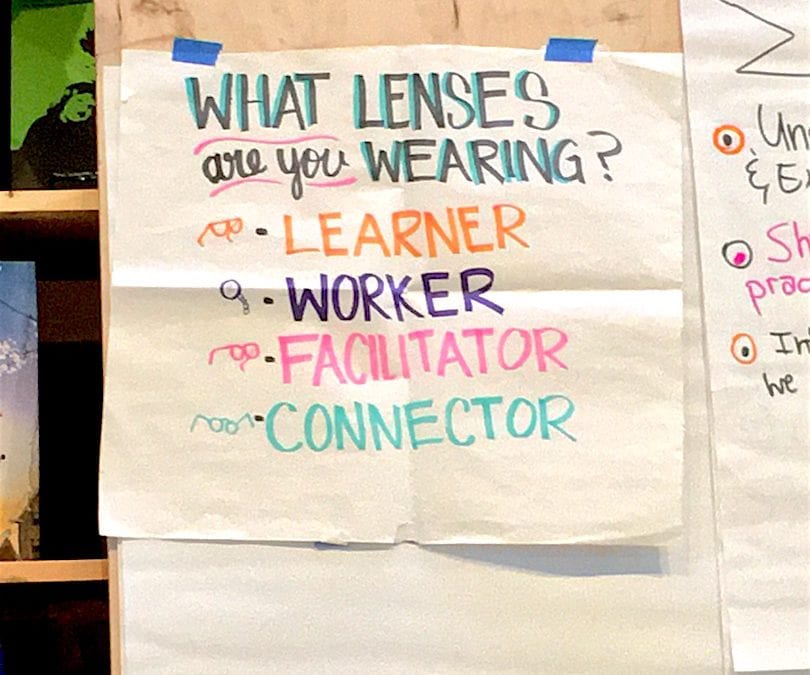 WHAT LENSES
are you WEARING?
· LEARNER
· WORKER
· FACILITATOR
· CONNECTOR
& 
we